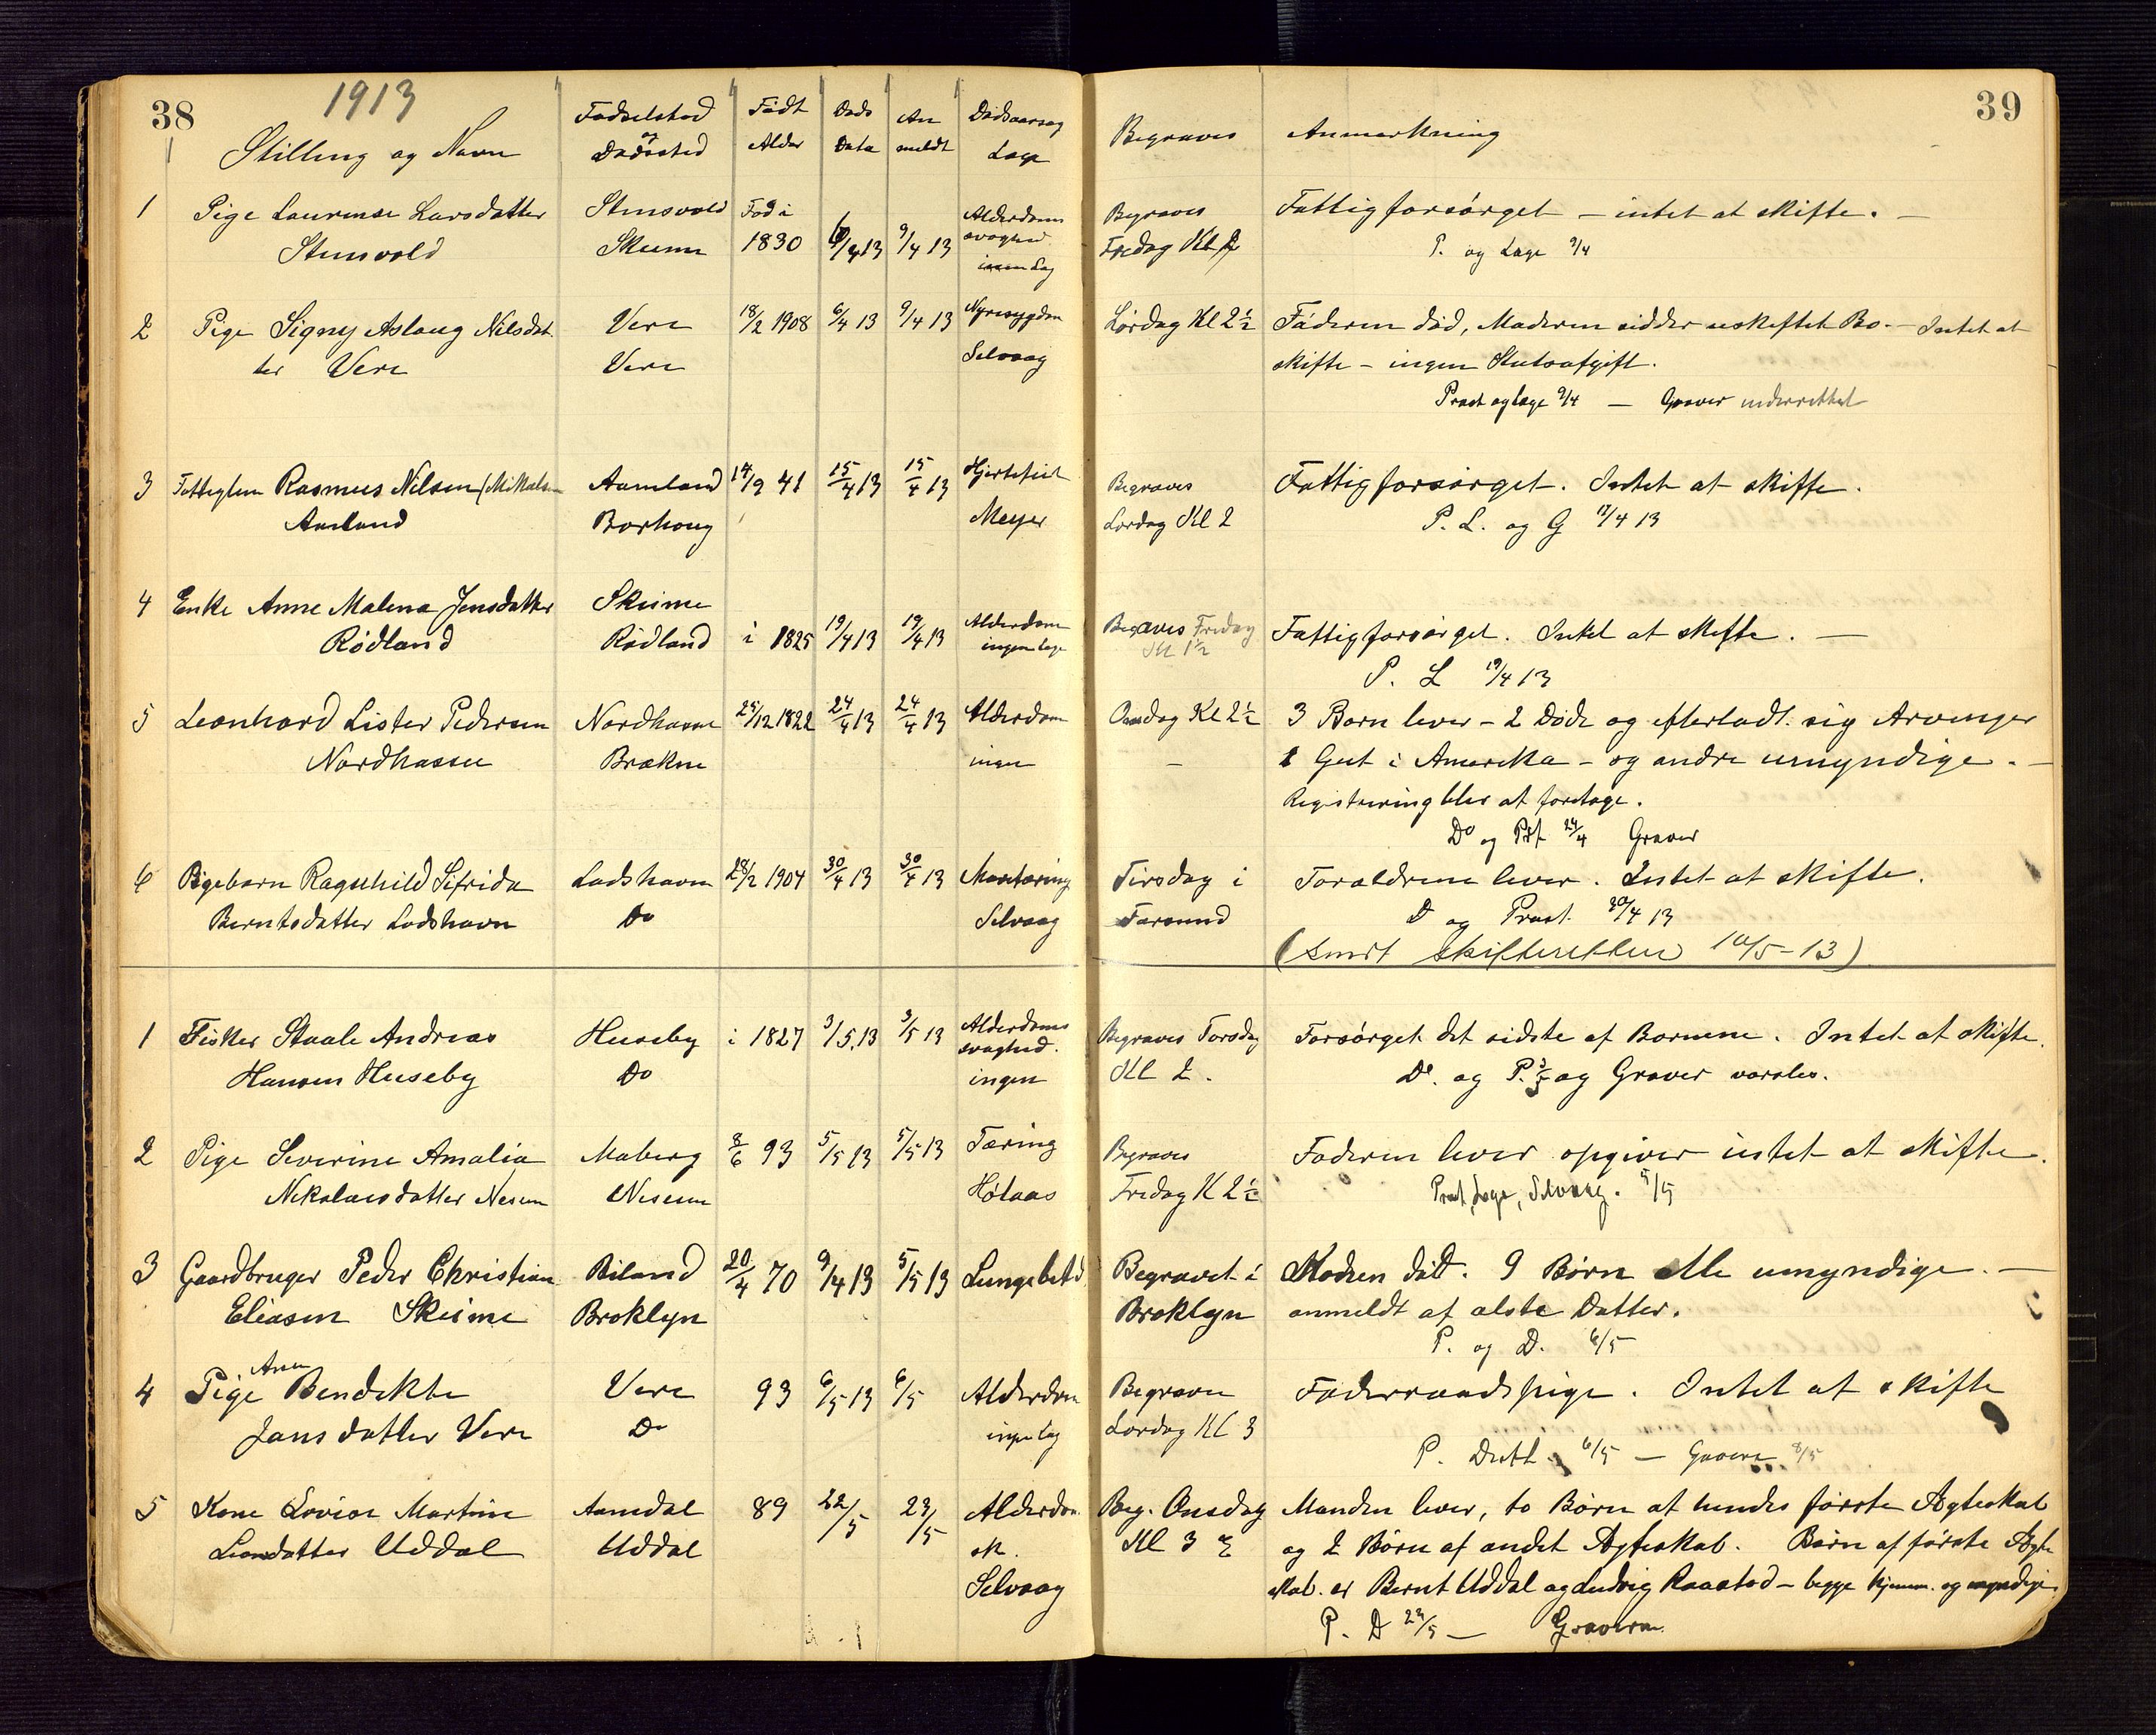 38
1913
Stilling og Navn
Fødselsted og Dødssted
Født Alder
Døds Data
An meldt
Dødsaarsag Læge
1 Pige Laurense Larsdatter Stensvold Fød i Alderdoms
Stensvold Skeime 1830 6/4 13 9/4 13 svaghed
ingen Læg
2 Pige Signy Aslaug Nilsdat Vere 18/2 1908 6/4 13 9/4 13 Nyresygdom
ter Vere Vere Selvaag
3 Fattiglem Rasmus Nilsen (Mikalsen Aamland 14/9 41 15/4 13 15/4 13 Hjertefeil
Aamland Borhoug Meyer
4 Enke Anne Malena Jensdatter Skeime
Rødland Rødland i 1825 19/4 13 19/4 13 Alderdom
ingen læge
5 Leonhard Lister Pedersen Nordhassel 25/12 1822 24/4 13 24/4 13 Alderdom
Nordhassel Brekne ingen
6 Pigebarn Ragnhild Sifrida Lodshavn 28/2 1904 30/4 13 30/4 13
Berntsdatter Lodshavn Do Selvaag
1 Fisker Staale Andreas Huseby i 1827 3/5.13 3/5 13 Alderdoms
svaghed.
Hansen Huseby Do ingen
2 Pige Severine Amalia Maberg 8/6 93 5/5 13 5/5 13 Tæring
Nikolaisdatter Nesum Nesum Hølaas
3 Gaardbruger Peder Christian Biland 20/4 70 9/4 13 5/5 13 Lungebetd
Eliasen Skeime Broklyn
Ane
4 Pige Bendikte Vere 93 6/5 13 6/5 Alderdom
Jansdatter Vere Do ingen læg
5 Kone Lovise Martine Aamdal 89 22/5 23/5 Alderdom
datter Uddal Uddal
Selvaag
39
Begraves Anmerkning
Begraves Fattigforsørget – intet at skifte. –
Fredag Kl 2 P. og Læge 9/4
Lørdag Kl 2½ Faderen død, Moderen sidder uskiftet Bo. – Intet at
skifte – ingen Slutsafgift.
Prest og læge 9/4 – Graver underrettet
Begraves Fattigforsørget. Intet at skifte.
Lørdag Kl 2 P. L. og G 17/4 13
Begraves Fredag Fattigforsørget. Intet at skifte. –
Kl 1½
P. L 19/4 13
Onsdag Kl 2½ 3 Børn lever – 2 Døde og efterladt sig Arvinger
– 1 Gut i Amerika – og andre umyndige. –
Registrering blev at foretage.
Do og Pst 24/4 Graver
Tirsdag i Forældrene lever. Intet at skifte.
Farsund D og Prest. 30/4 13
(Sendt skifteretten 10/5-13)
Begraves Torsdag Forsørget det sidste af Børnene. Intet at skifte.
Kl 2. Do. og P. 3/5 og Graver varsles.
Begraves Faderen lever opgiver intet at skifte.
Fredag K 2½ Prest, Læge, Selvaag. 5/5
Begravet i Konen død. 9 Børn Alle umyndige. –
Broklyn anmeldt af ælste Datter.
P. og D. 6/5
Begraves Føderaadspige. Intet at skifte
Lørdag Kl 3
P. 6/5 – Graver 8/5
Beg. Onsdag Manden lever, to Børn af hendes første Ægteskab
Kl 3 og 2 Børn af andet Ægteskab. Børn af første Ægte
skab. er Bernt Uddal og Ludvig Raastad – begge hjemme. og myndige.
P. D 23/5 – Graveren